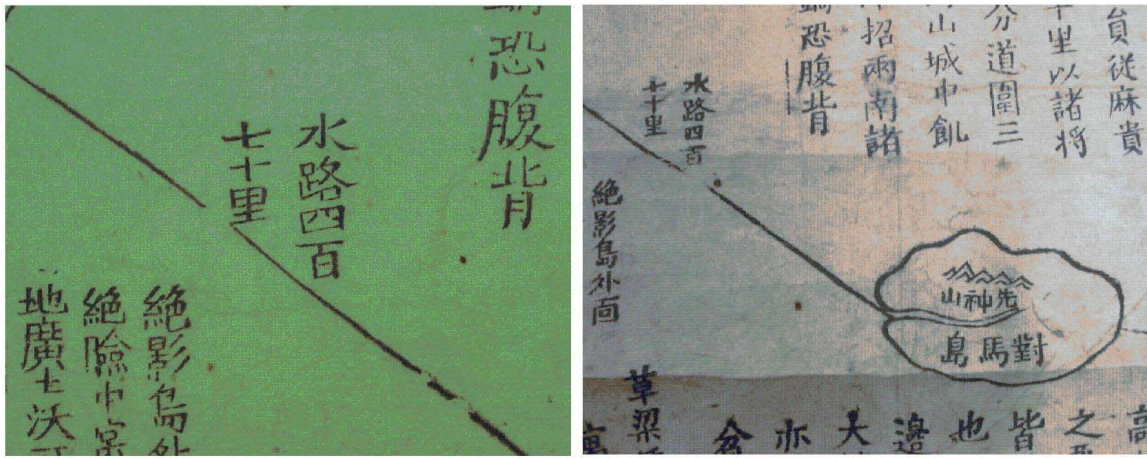 恐腹背
水路四百
七十里
絶影島外
絶險中
地廣土沃
員從麻貴
里以諸將
分道圍三
山城中飢
招兩南諸
恐腹背
水路四百
七十里
絶影島外面
先神山
對馬島
之
皆
也
邊
大
亦
草梁